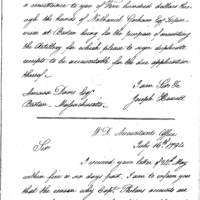 a remittance to you of Five hundred dollars through
the hands of Nathaniel Gorham Esqr. Super-
visor at Boston being for the purpose of mounting
the Artillery for which please to sign duplicate
receipts to be accountable for the due application
thereof
I am Sir &c
Amasa Davis Esqr.
Joseph Howell
Boston Massachusetts
W.D. Accountants Office
July 16th. 1794
Sir
I received your letter of 25th. May
within five or six days past, I am to inform you
that the reason why Capt. accounts are